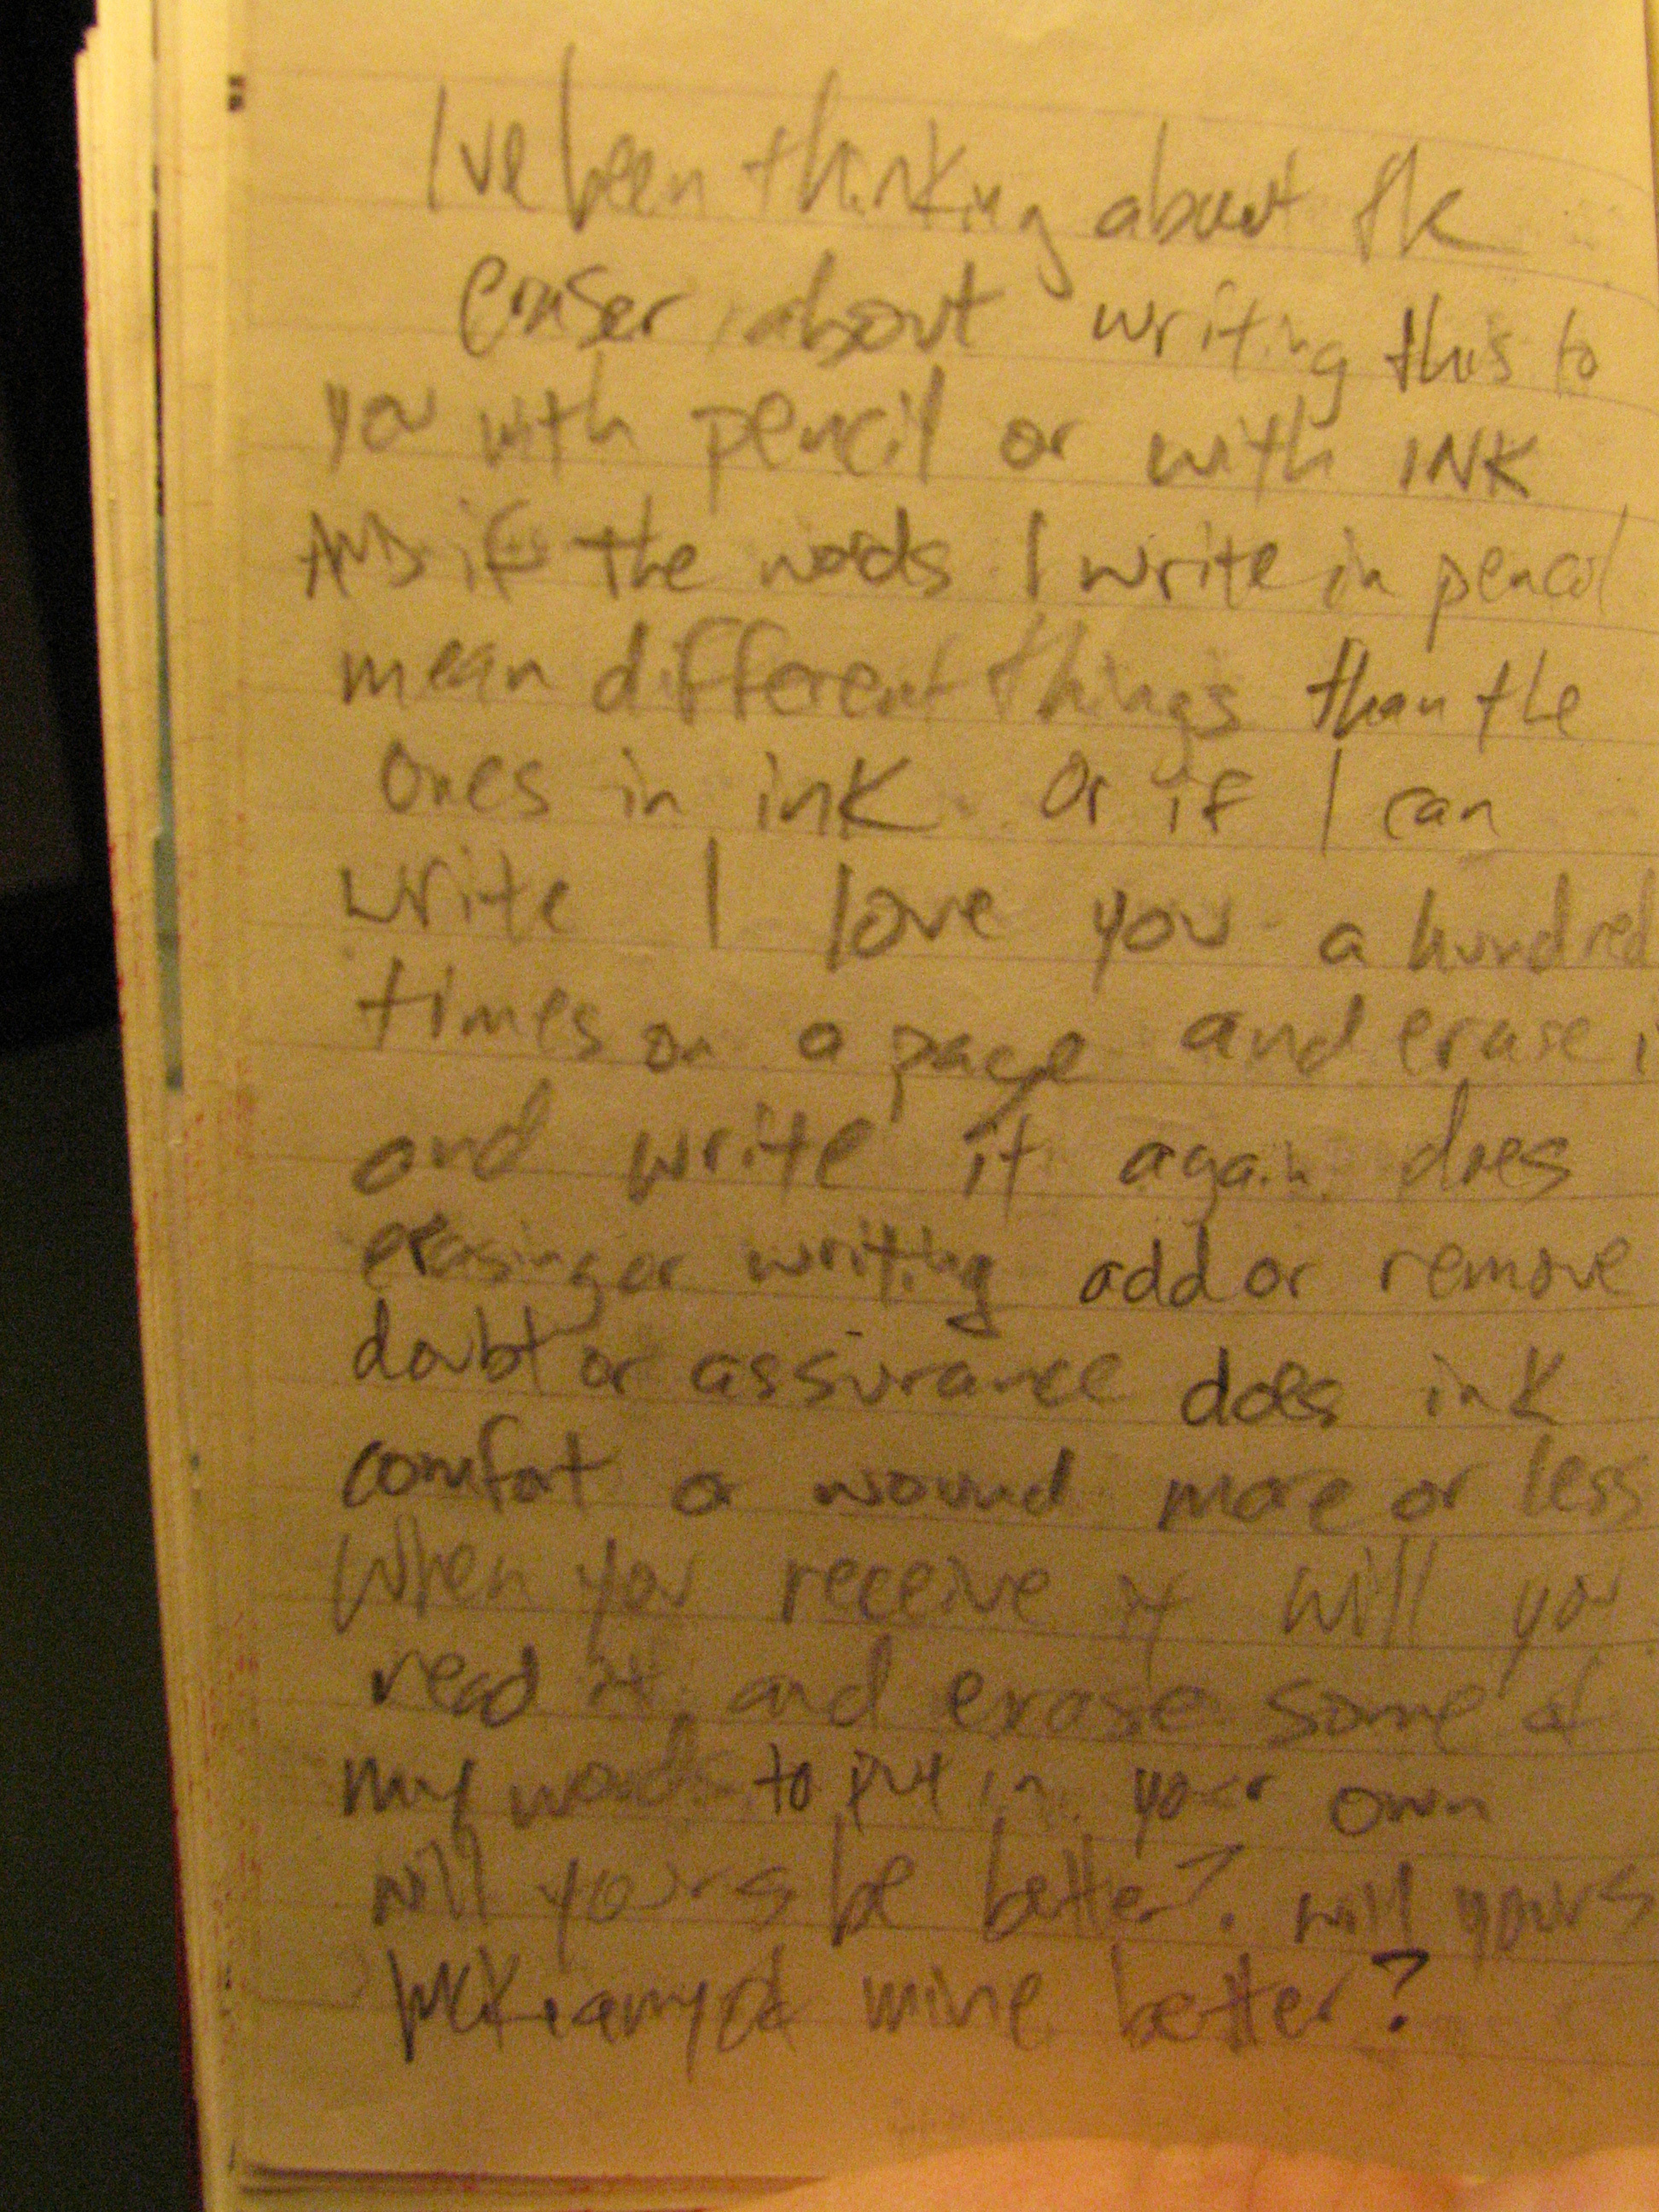 I've been thinking about the
eraser, about writing this to
you with pencil or with INK
AND if the words I write in pencil
mean different things than the
ones in ink. Or if I can
write I love you a hundred
times on a page and erase i
and write it again. does
erasing or writing add or remove
doubt or assurance does ink
comfort a wound more or less
When you receive it will you
read it, and erase some of
my words to put in your own
will yours be better? will yours
mine better?